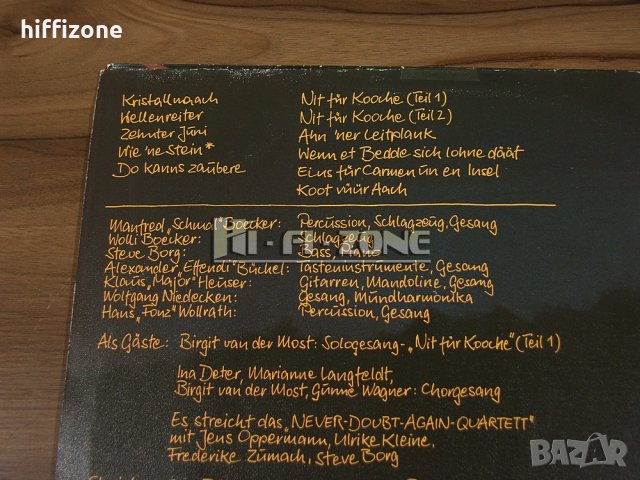 hiffizone
Kristallnaach
Wellenreiter
Zehnter Juni
Wie 'ne Stein*
Do kanns zaubere
Nit für Kooche (Teil 1)
Nit für Kooche (Teil 2)
Ahn 'ner Leitplank
Wenn et Bedde sich lohne däät
Eins für Carmen un en Insel
Koot vüür Aach
Manfred "Schmal" Boecker: Percussion, Schlagzeug, Gesang
Wolli Boecker: Schlagzeug
Steve Borg: Bass, Piano
Alexander "Effendi" Büchel: Tasteninstrumente, Gesang
Klaus "Major" Heuser: Gitarren, Mandoline, Gesang
Wolfgang Niedecken: Gesang, Mundharmonika
Hans "Fonz" Wollrath: Percussion, Gesang
HI-FI-ZONE
Als Gäste: Birgit van der Most: Sologesang - "Nit für Kooche" (Teil 1)
Ina Deter, Marianne Langfeldt,
Birgit van der Most, Günne Wagner: Chorgesang
Es streicht das "NEVER-DOUBT-AGAIN-QUARTETT"
mit Jens Oppermann, Ulrike Kleine,
Frederike Zumach, Steve Borg
BAZAR